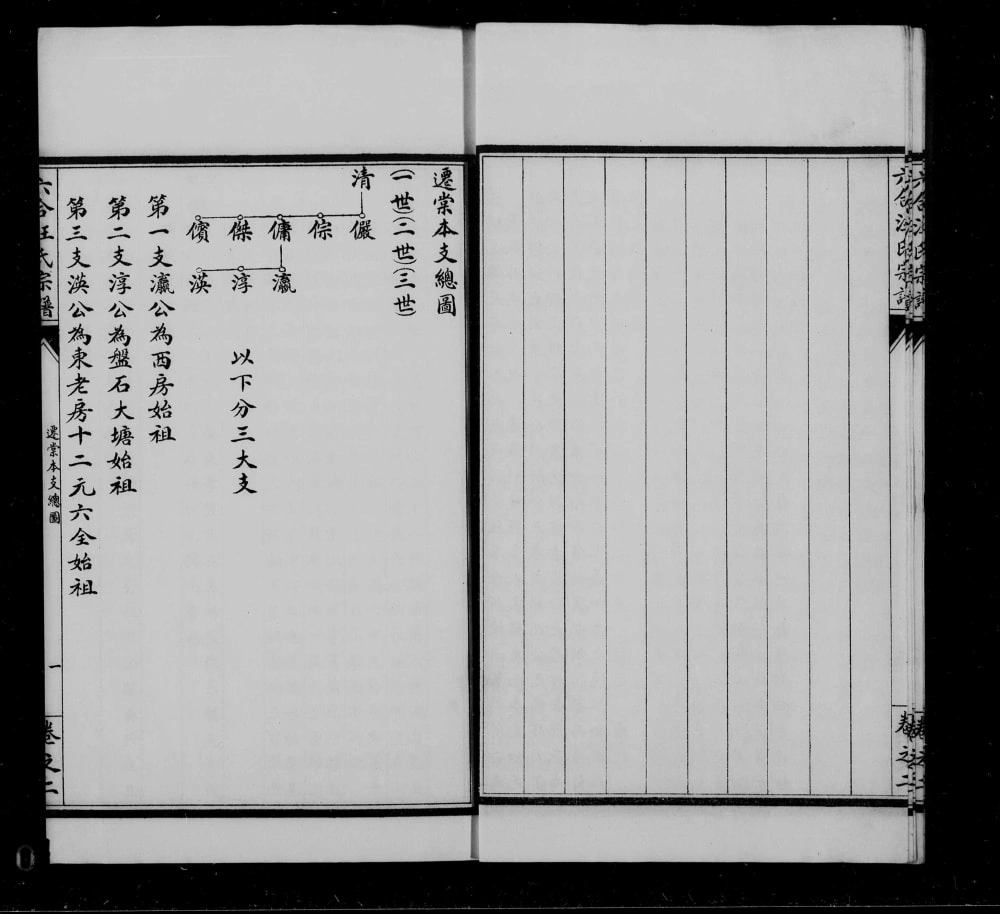 六合汪氏宗譜
卷之二
遷棠本支總圖
(一世)(二世)(三世)
清
儼
倧
傭
傑
儐
瀛
淳
渶
以下分三大支
第一支瀛公為西房始祖
第二支淳公為盤石大塘始祖
第三支渶公為東老房十二元六全始祖
六合汪氏宗譜
遷棠本支總圖
一
卷之二